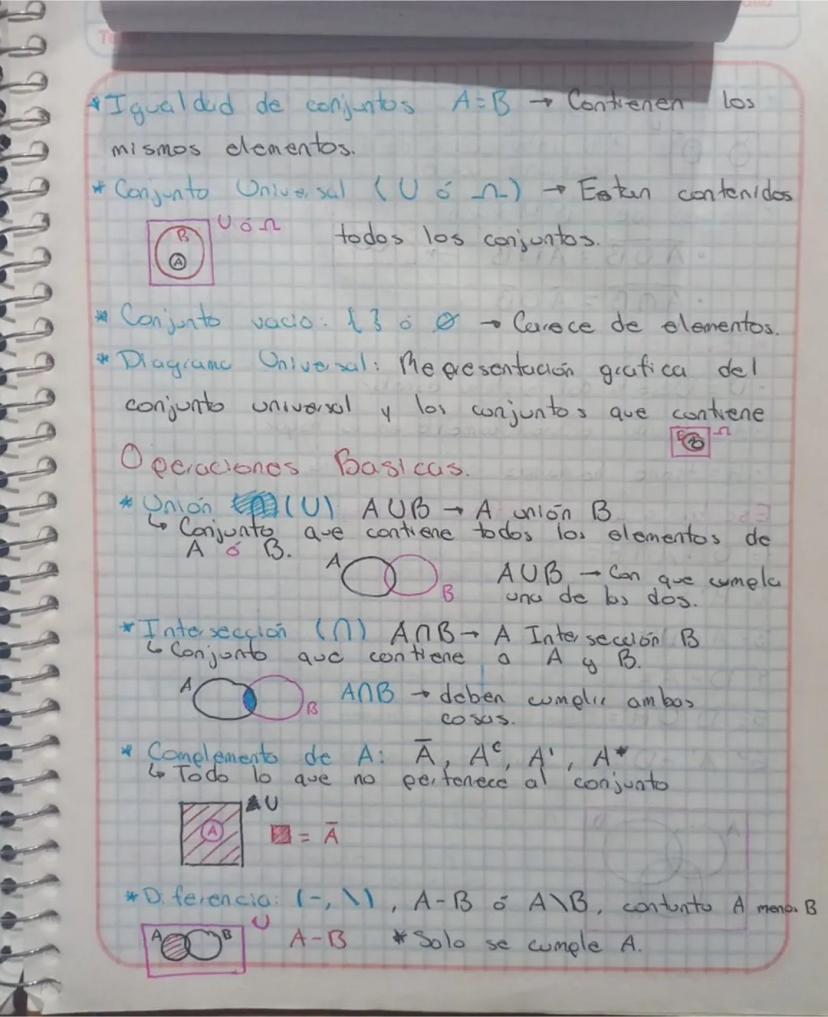 * Igualdad de conjuntos A=B → Contienen los
mismos elementos.
* Conjunto Universal (U ó Ω) → Estan contenidos
B U ó Ω todos los conjuntos.
A
* Conjunto vacio: { } ó ∅ → Carece de elementos.
* Diagrama Universal: Representación grafica del
conjunto universal y los conjuntos que contiene
Ω
Operaciones Basicas.
* Unión (U) AUB → A unión B
↳ Conjunto que contiene todos los elementos de
A ó B.
A B AUB → Con que cumpla
una de los dos.
* Intersección (∩) A∩B → A Intersección B
↳ Conjunto que contiene a A y B.
A B A∩B → deben cumplir ambos
cosas.
* Complemento de A: Ā, Aᶜ, A', A*
↳ Todo lo que no pertenece al conjunto
U
A = Ā
* Diferencia: (-, \), A-B ó A\B, contunto A menos B
A B U A-B * Solo se cumple A.